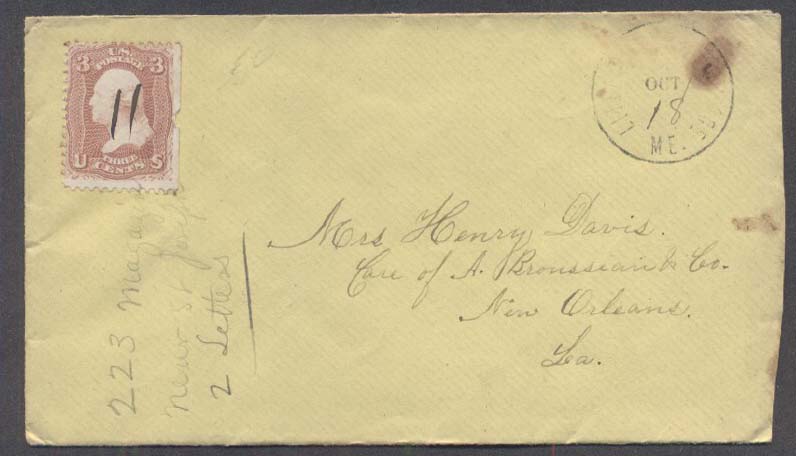 U.S. POSTAGE
3 3
U THREE CENTS S
OCT
18
ME.
Mrs Henry Davis.
Care of A. Broussean & Co.
New Orleans.
La.
223
near St
2 Letters